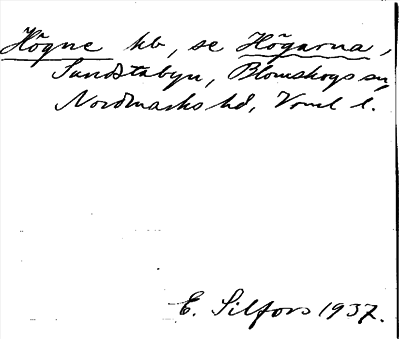 Högne kb, se Högarna,
Sundstabyn, Blomskogs sn,
Nordmarks hd, Vrml l.
E. Silfors 1937.